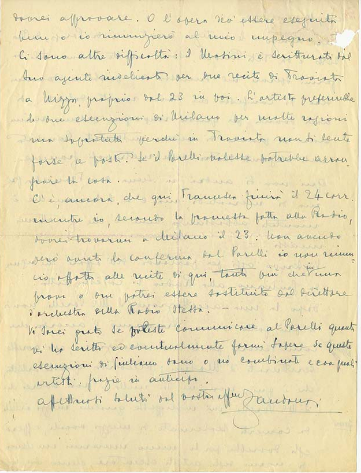 dovrei approvare. O l'opera può essere eseguita
bene o io rinunzierò al mio impegno.
Ci sono altre difficoltà: I Malini, è scritturato dal
suo agente per due recite di Traviata
a Nizza, proprio dal 23 in poi. L'artista preferirebbe
le due esecuzioni di Milano per molte ragioni
ma sopratutto perchè in Traviata non si sente
forse a posto. Se il Parelli volesse potrebbe
la cosa.
C'è ancora, che qui, Francesca finirà il 24 corr.
mentre io, secondo la promessa fatta alla Radio,
dovrei trovarmi a Milano il 23. Non avendo
però avuta la conferma dal Parelli io non
affatto alle recite di qui, tanto più che una
prova o due potrei essere sostituito dal direttore
d'orchestra della Radio stessa. —
Vi sarei grato se poteste comunicare al Parelli quanto
vi ho scritto ed eventualmente farmi sapere se queste
esecuzioni di Giuliano sono o no combinate e con quali
artisti. Grazie in anticipo.
Affettuosi saluti dal vostro aff Zandonai